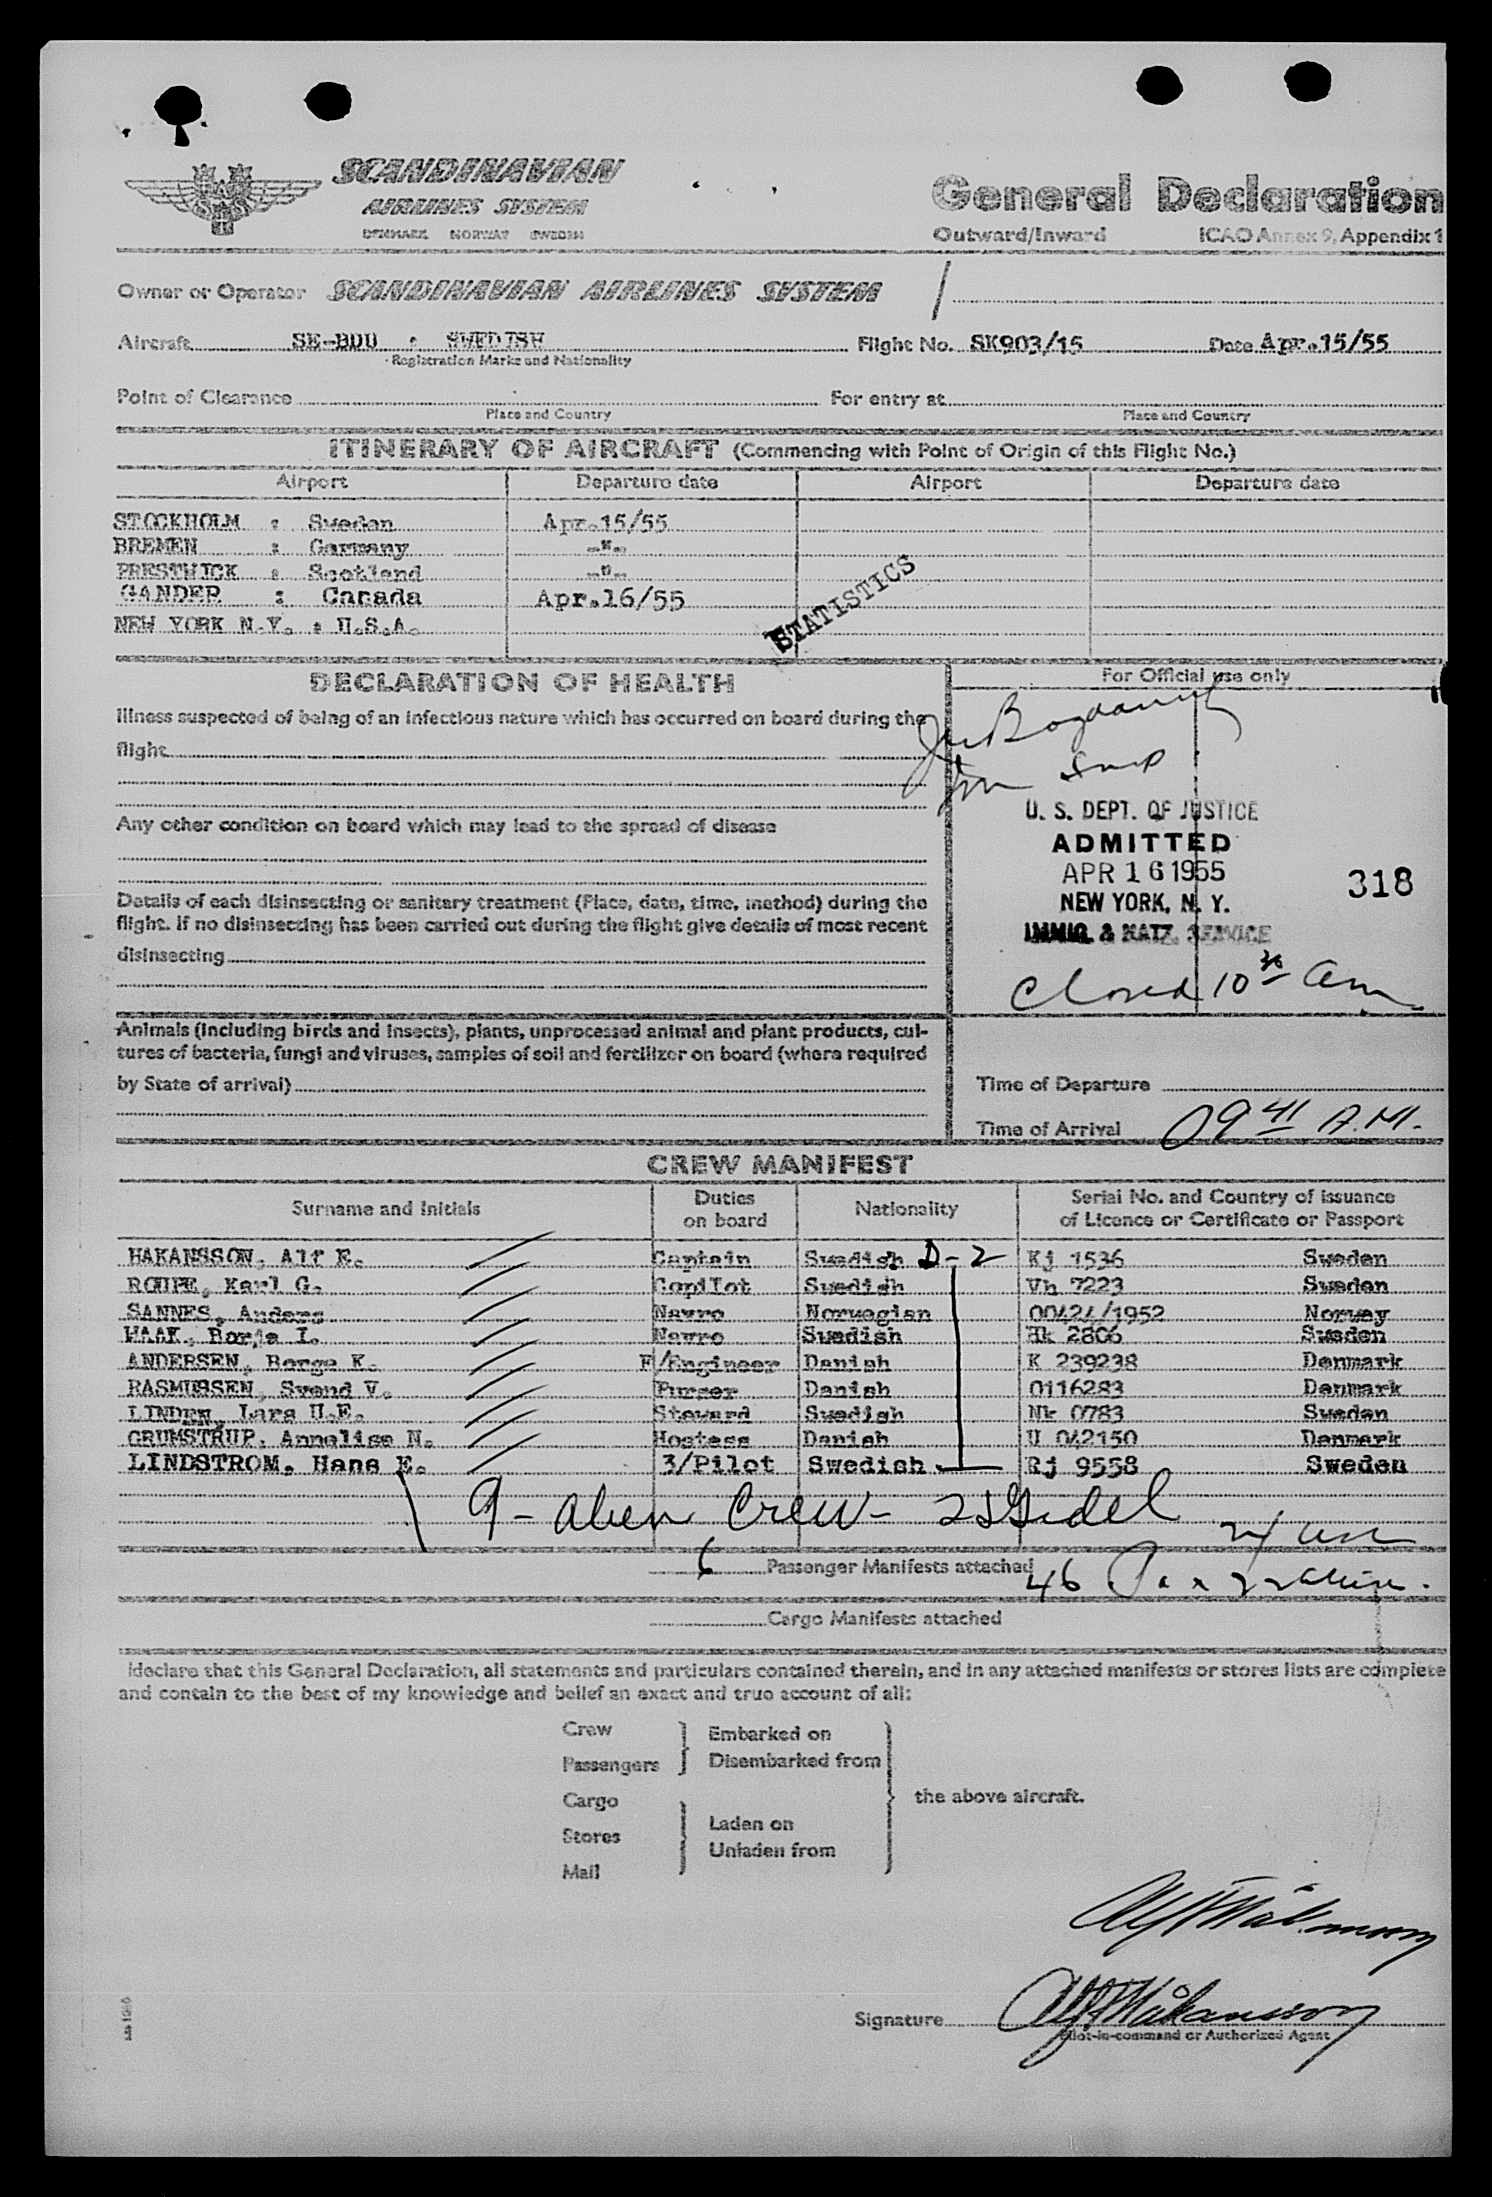 SCANDINAVIAN
AIRLINES SYSTEM
DENMARK NORWAY SWEDEN
General Declaration
Outward/Inward ICAO Annex 9, Appendix 1
Owner or Operator SCANDINAVIAN AIRLINES SYSTEM /
Aircraft SE-BDU : SWEDISH Flight No. SK903/15 Date Apr.15/55
Registration Marks and Nationality
Point of Clearance For entry at
Place and Country Place and Country
ITINERARY OF AIRCRAFT (Commencing with Point of Origin of this Flight No.)
Airport Departure date Airport Departure date
STOCKHOLM : Sweden Apr.15/55
BREMEN : Germany -"-
PRESTWICK : Scotland -"-
GANDER : Canada Apr.16/55
NEW YORK N.Y. : U.S.A.
STATISTICS
DECLARATION OF HEALTH
For Official use only
Illness suspected of being of an infectious nature which has occurred on board during the
flight
Any other condition on board which may lead to the spread of disease
Details of each disinsecting or sanitary treatment (Place, date, time, method) during the
flight. If no disinsecting has been carried out during the flight give details of most recent
disinsecting
U. S. DEPT. OF JUSTICE
ADMITTED
APR 16 1955
NEW YORK, N. Y.
IMMIG. & NATZ. SERVICE
318
Closed 10 30 am
Animals (including birds and insects), plants, unprocessed animal and plant products, cul-
tures of bacteria, fungi and viruses, samples of soil and fertilizer on board (where required
by State of arrival)
Time of Departure
Time of Arrival 09 41 A.M.
CREW MANIFEST
Surname and Initials Duties on board Nationality Serial No. and Country of issuance of Licence or Certificate or Passport
HAKANSSON, Alf E. Captain Swedish D-2 Kj 1536 Sweden
ROUPE, Karl G. Copilot Swedish Vh 7223 Sweden
SANNES, Anders Navro Norwegian 00424/1952 Norway
WAAK, Borje I. Navro Swedish Hk 2806 Sweden
ANDERSEN, Borge K. F/Engineer Danish K 239238 Denmark
RASMUSSEN, Svend V. Purser Danish 0116283 Denmark
LINDEN, Lars U.E. Steward Swedish Nk 0783 Sweden
GRUMSTRUP, Annelise N. Hostess Danish U 042150 Denmark
LINDSTROM, Hans E. 3/Pilot Swedish Rj 9558 Sweden
9 - alien Crew -
6 Passenger Manifests attached
46 Pax
Cargo Manifests attached
I declare that this General Declaration, all statements and particulars contained therein, and in any attached manifests or stores lists are complete
and contain to the best of my knowledge and belief an exact and true account of all:
Crew
Passengers
Embarked on
Disembarked from
Cargo
Stores
Mail
Laden on
Unladen from
the above aircraft.
Alf E Håkansson
Signature Alf E Håkansson
Pilot-in-command or Authorized Agent